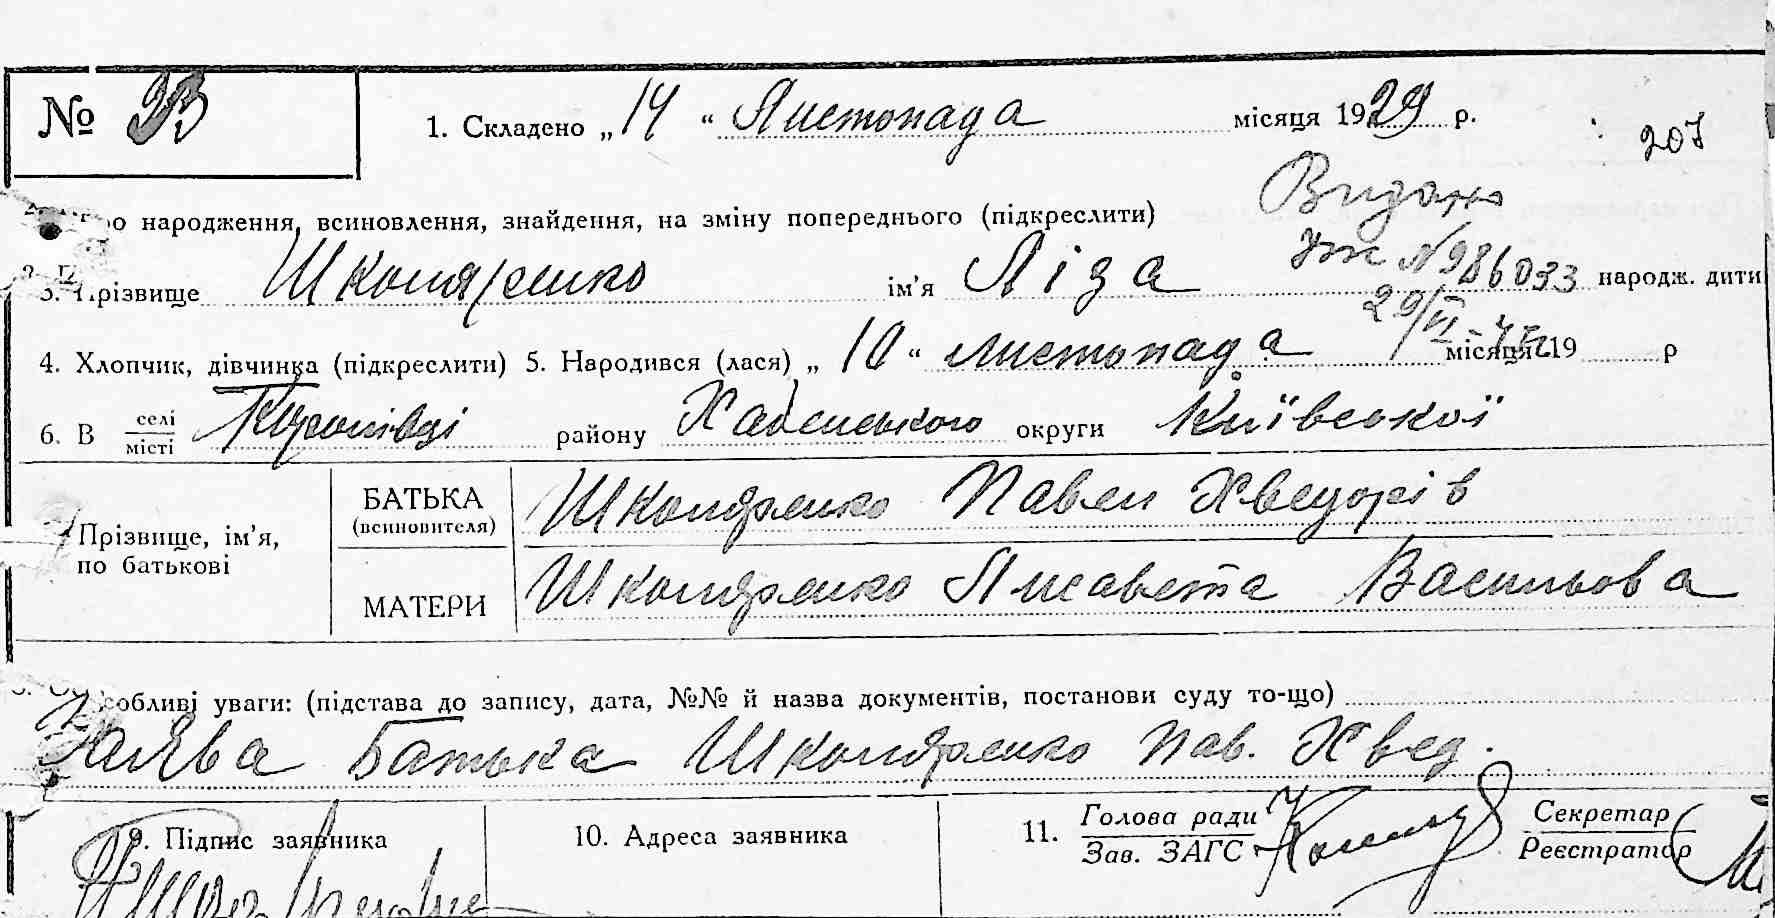 № 33 1. Складено „14“ Листопада місяця 1929 р. 207
народження, всиновлення, знайдення, на зміну попереднього (підкреслити) Видано
3. Прізвище Школяренко ім’я Ліза № 986033 народж. дити
29/VI
4. Хлопчик, дівчинка (підкреслити) 5. Народився (лася) „10“ листопада місяця 19 р
6. В селі/місті району Хабенського округи Київської
Прізвище, ім’я, по батькові
БАТЬКА (всиновителя) Школяренко Павел Хведорів
МАТЕРИ Школяренко Лисавета Васильова
особливі уваги: (підстава до запису, дата, №№ й назва документів, постанови суду то-що)
Заява Батька Школяренко Пав. Хвед.
9. Підпис заявника 10. Адреса заявника 11. Голова ради/Зав. ЗАГС Секретар/Реєстратор